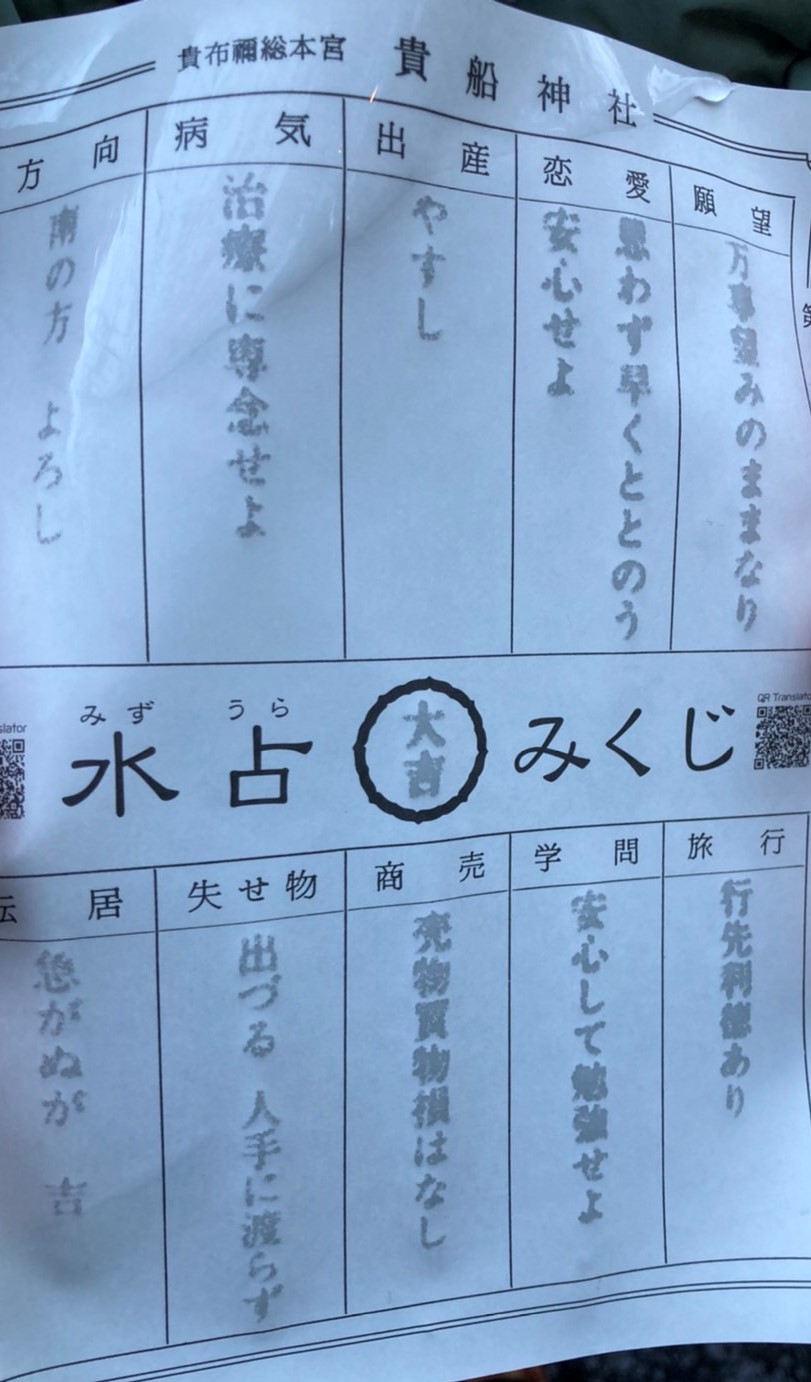 貴布禰総本宮 貴船神社
願望
万事望みのままなり
恋愛
思わず早くととのう
安心せよ
出産
やすし
病気
治療に専念せよ
方向
南の方 よろし
QR Translator
みず うら
水占 みくじ
大吉
slator
旅行
行先利徳あり
学問
安心して勉強せよ
商売
売物買物損はなし
失せ物
出づる 人手に渡らず
転居
急がぬが 吉